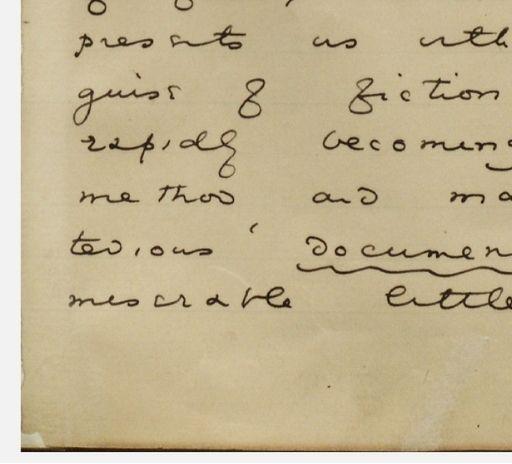 presents us with
guise of fiction
rapidly becoming
method and ma
tedious 'Documen
miserable little